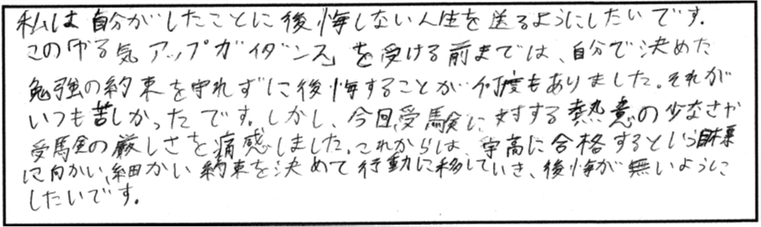 私は自分がしたことに後悔しない人生を送るようにしたいです。
この「やる気アップガイダンス」を受ける前までは、自分で決めた
勉強の約束を守れずに後悔することが何度もありました。それが
いつも苦しかったです。しかし、今回、受験に対する熱意の少なさや
受験の厳しさを痛感しました。これからは、宇高に合格するという目標
に向かい、細かい約束を決めて行動に移していき、後悔が無いように
したいです。